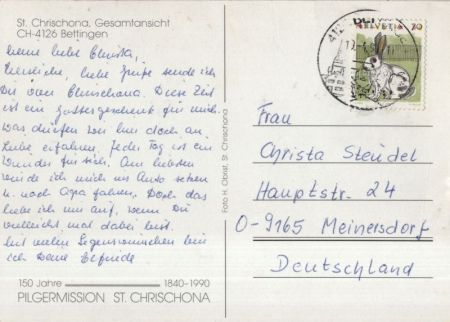 St. Chrischona, Gesamtansicht
CH-4126 Bettingen
Meine liebe Christa,
Herzliche, liebe Grüße sende ich
Dir von Chrischona. Diese Zeit
ist ein Gottesgeschenk für mich.
was dürfen wir hier doch an
Liebe erfahren. Jeder Tag ist ein
Wunder für sich. Am liebsten
würde ich mich ins Auto setzen
u. nach fahren. Doch das
hebe ich mir auf, wenn Du
vielleicht mal dabei bist.
Mit vielen Segenswünschen bin
ich Deine
150 Jahre 1840-1990
PILGERMISSION ST. CHRISCHONA
Foto H. Obrist, St. Chrischona
HELVETIA 70
Frau
Christa Steudel
Hauptstr. 24
O-9165 Meinersdorf
Deutschland